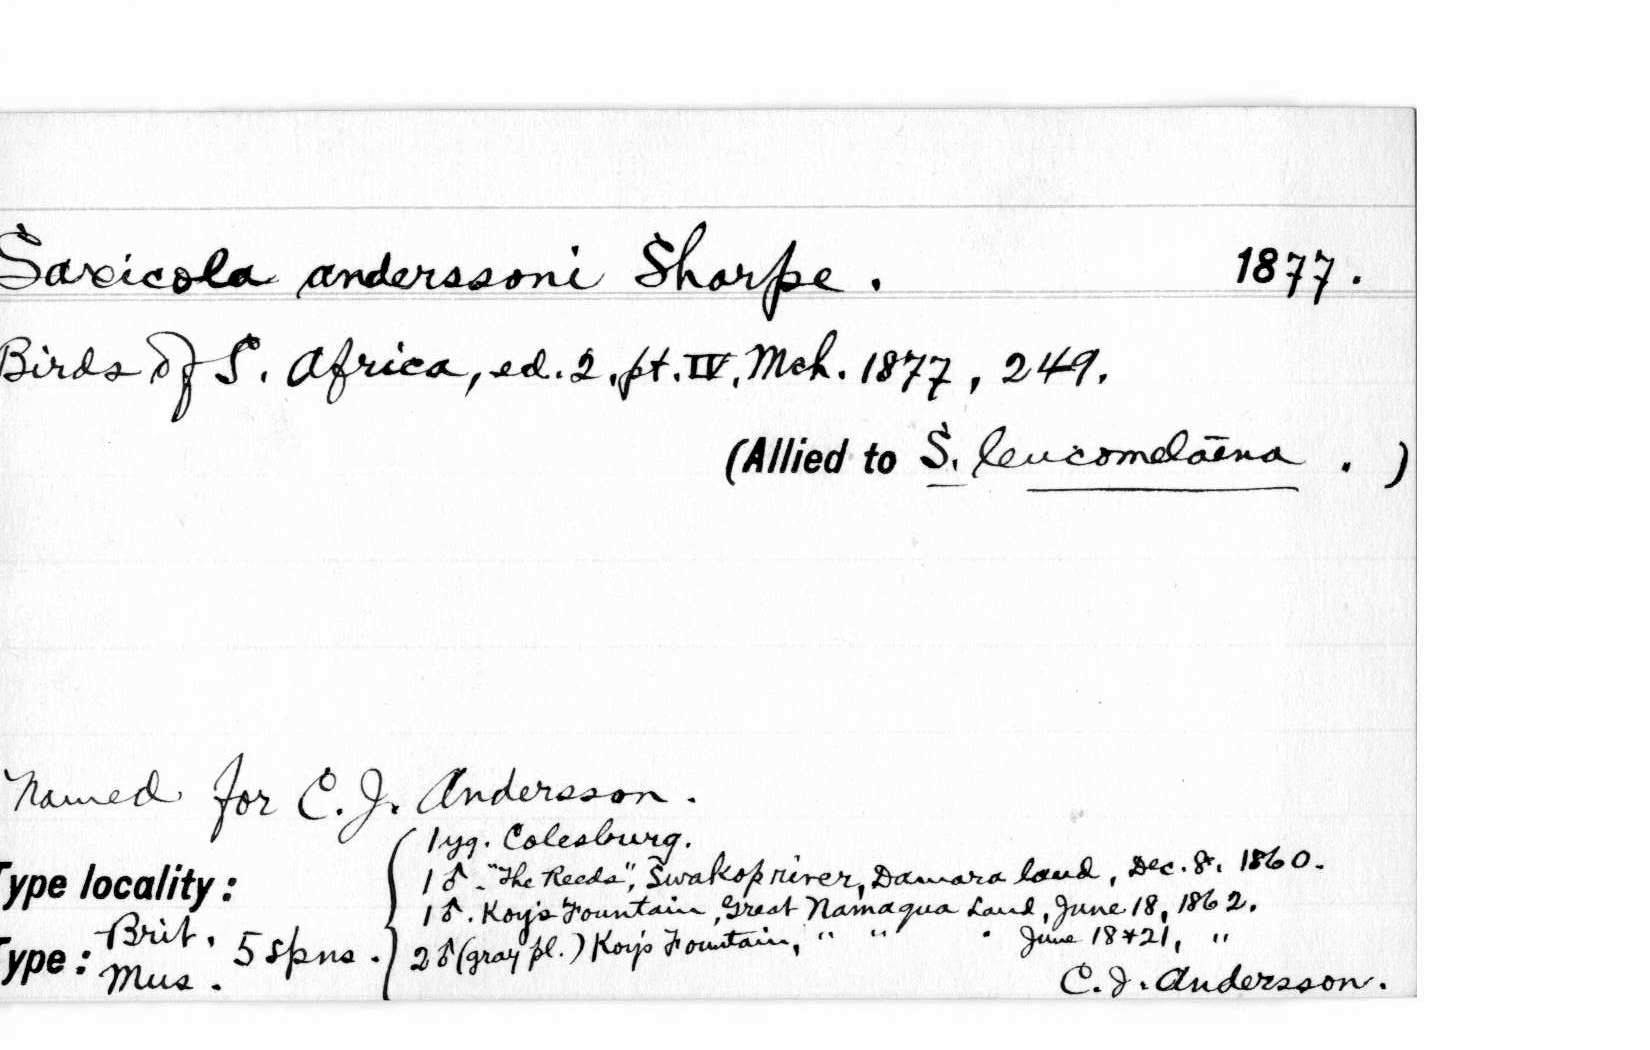 Saxicola anderssoni Sharpe. 1877.
Birds of S. Africa, ed. 2, pt. IV, Mch. 1877, 249.
(Allied to S. leucomelaena . )
Named for C. J. Andersson.
1 yg. Colesburg.
Type locality:
1 ♂. "The Reeds", Swakop river, Damara land, Dec. 8, 1860.
1 ♂. Koy's Fountain, Great Namaqua Land, June 18, 1862.
Type: Brit. Mus. 5 spns.
2 ♂ (gray pl.) Koy's Fountain, " " " June 18+21, "
C. J. Andersson.